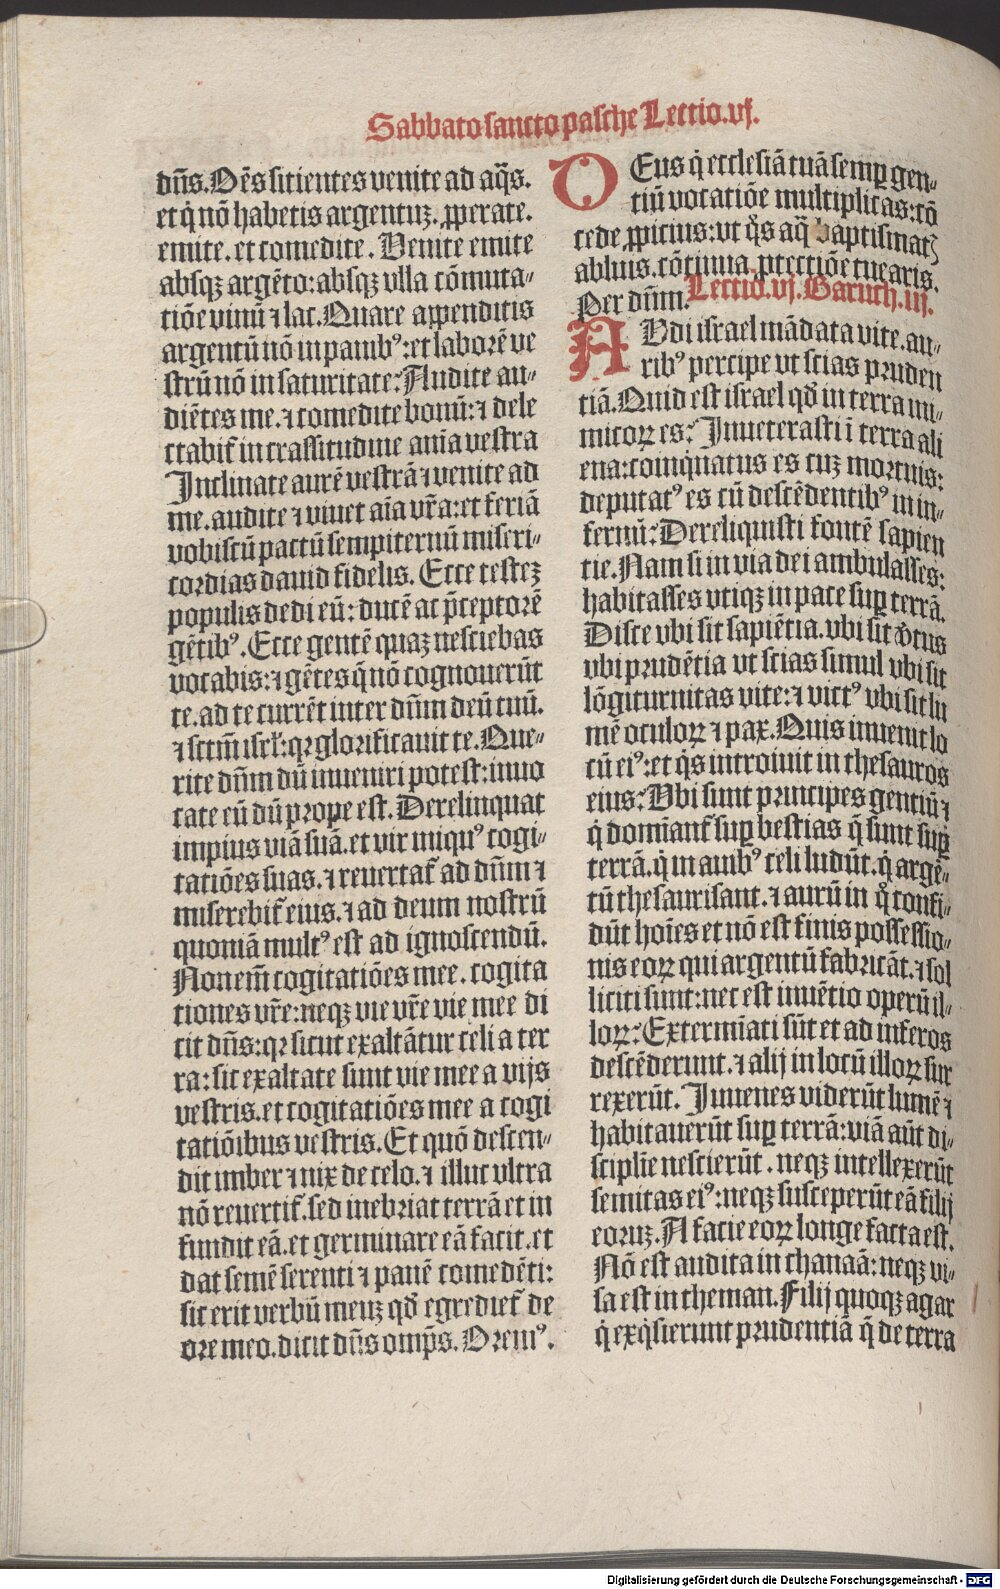 Sabbato sancto pasche Lectio.vj.
dñs. Oẽs sitientes venite ad aq̃s.
et q̇ nõ habetis argentuꝫ. ꝓperate.
emite. et comedite. Venite emite
absqꝫ argẽto: absqꝫ vlla cõmuta-
tiõe vinũ ⁊ lac. Quare appenditis
argentũ nõ in panibꝰ: et laborẽ ve
strũ nõ in saturitate? Audite au-
diẽtes me. ⁊ comedite bonũ: ⁊ dele
ctabit᷑ in crassitudine anĩa vestra
Inclinate aurẽ vestrã ⁊ venite ad
me. audite ⁊ viuet aĩa vr̃a: et feriã
vobiscũ pactũ sempiternũ miseri-
cordias dauid fidelis. Ecce testeꝫ
populis dedi eũ: ducẽ ac p̃ceptorẽ
gẽtibꝰ. Ecce gentẽ quaꝫ nesciebas
vocabis: ⁊ gẽtes q̃ nõ cognouerũt
te. ad te currẽt inter dñm deũ tuũ.
⁊ sctm̃ isrl̃: qꝛ glorificauit te. Que-
rite dñm dũ inueniri potest: inuo
cate eũ dũ prope est. Derelinquat
impius viã suã. et vir iniquꝰ cogi-
tatiões suas. ⁊ reuertat᷑ ad dñm ⁊
miserebit᷑ eius. ⁊ ad deum nostrũ
quoniã multꝰ est ad ignoscendũ.
Non em̃ cogitatiões mee. cogita
tiones vr̃e: neqꝫ vie vr̃e vie mee di
cit dñs: qꝛ sicut exaltãtur celi a ter
ra: sic exaltate sunt vie mee a vijs
vestris. et cogitatiões mee a cogi
tatiõibus vestris. Et quõ descen-
dit imber ⁊ nix de celo. ⁊ illuc vltra
nõ reuertit᷑. sed inebriat terrã et in
fundit eã. et germinare eã facit. et
dat semẽ serenti ⁊ panẽ comedẽti:
sic erit verbũ meuꝫ qḋ egrediet᷑ de
ore meo. dicit dñs omp̃s. Oremꝰ.
DEus q̇ ecclesiã tuã semꝑ gen-
tiũ vocatiõe multiplicas: cõ
cede ꝓpicius: vt q̊s aq̃ baptismatꝭ
abluis. cõtinua ꝓtectiõe tuearis.
Per dñm. Lectio.vj. Baruch.iij.
AUdi israel mãdata vite. au-
ribꝰ percipe vt scias pruden
tiã. Quid est israel qḋ in terra ini-
micoꝝ es? Inueterasti ĩ terra ali
ena: coinq̇natus es cuꝫ mortuis:
deputatꝰ es cũ descẽdentibꝰ in in-
fernũ? Dereliquisti fontẽ sapien
tie. Nam si in via dei ambulasses:
habitasses vtiqꝫ in pace suꝑ terrã.
Disce vbi sit sapiẽtia. vbi sit v̓tus
vbi prudẽtia vt scias simul vbi sit
lõgiturnitas vite: ⁊ victꝰ vbi sit lu
mẽ oculoꝝ ⁊ pax. Quis inuenit lo
cũ eiꝰ: et q̇s introiuit in thesauros
eius? Vbi sunt principes gentiũ ⁊
q̇ domĩant᷑ suꝑ bestias q̃ sunt suꝑ
terrã. q̇ in auibꝰ celi ludũt. q̇ argẽ-
tũ thesaurisant. ⁊ aurũ in q̊ confi-
dũt hoĩes et nõ est finis possessio-
nis eoꝝ qui argentũ fabricãt. ⁊ sol
liciti sunt: nec est inuẽtio operũ il-
loꝝ? Extermĩati sũt et ad inferos
descẽderunt. ⁊ alij in locũ illoꝝ sur
rexerũt. Iuuenes viderũt lumẽ ⁊
habitauerũt suꝑ terrã: viã aũt di-
sciplĩe nescierũt. neqꝫ intellexerũt
semitas eiꝰ: neqꝫ susceperũt eã filij
eoruꝫ. A facie eoꝝ longe facta est.
Nõ est audita in chanaã: neqꝫ vi-
sa est in theman. Filij quoqꝫ agar
q̇ exq̇sierunt prudentiã q̃ de terra
Digitalisierung gefördert durch die Deutsche Forschungsgemeinschaft - DFG